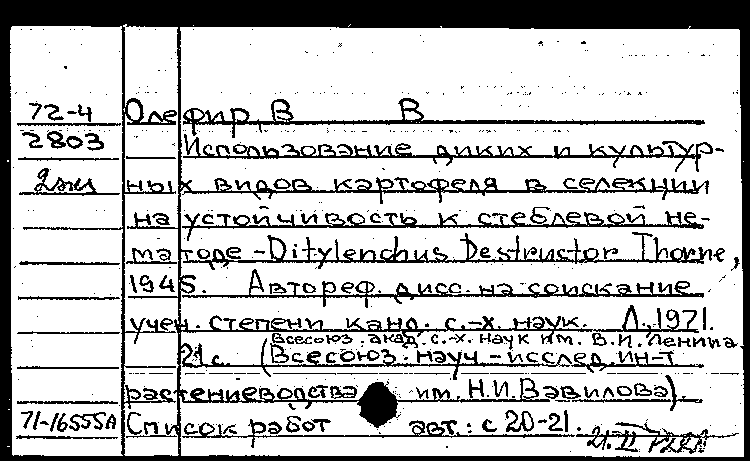 72-4 Олефир, В В
2803 Использование диких и культур-
2экз ных видов картофеля в селекции
на устойчивость к стеблевой не-
матоде - Ditylenchus Destructor Thorne,
1945. Автореф. дисс. на соискание
учен. степени канд. с.-х. наук. Л., 1971.
Всесоюз. акад. с.-х. наук им. В.И. Ленина.
21с. (Всесоюз. науч.-исслед. ин-т
растениеводства им. Н.И. Вавилова).
71-16555А Список работ авт.: с 20-21.
21.II